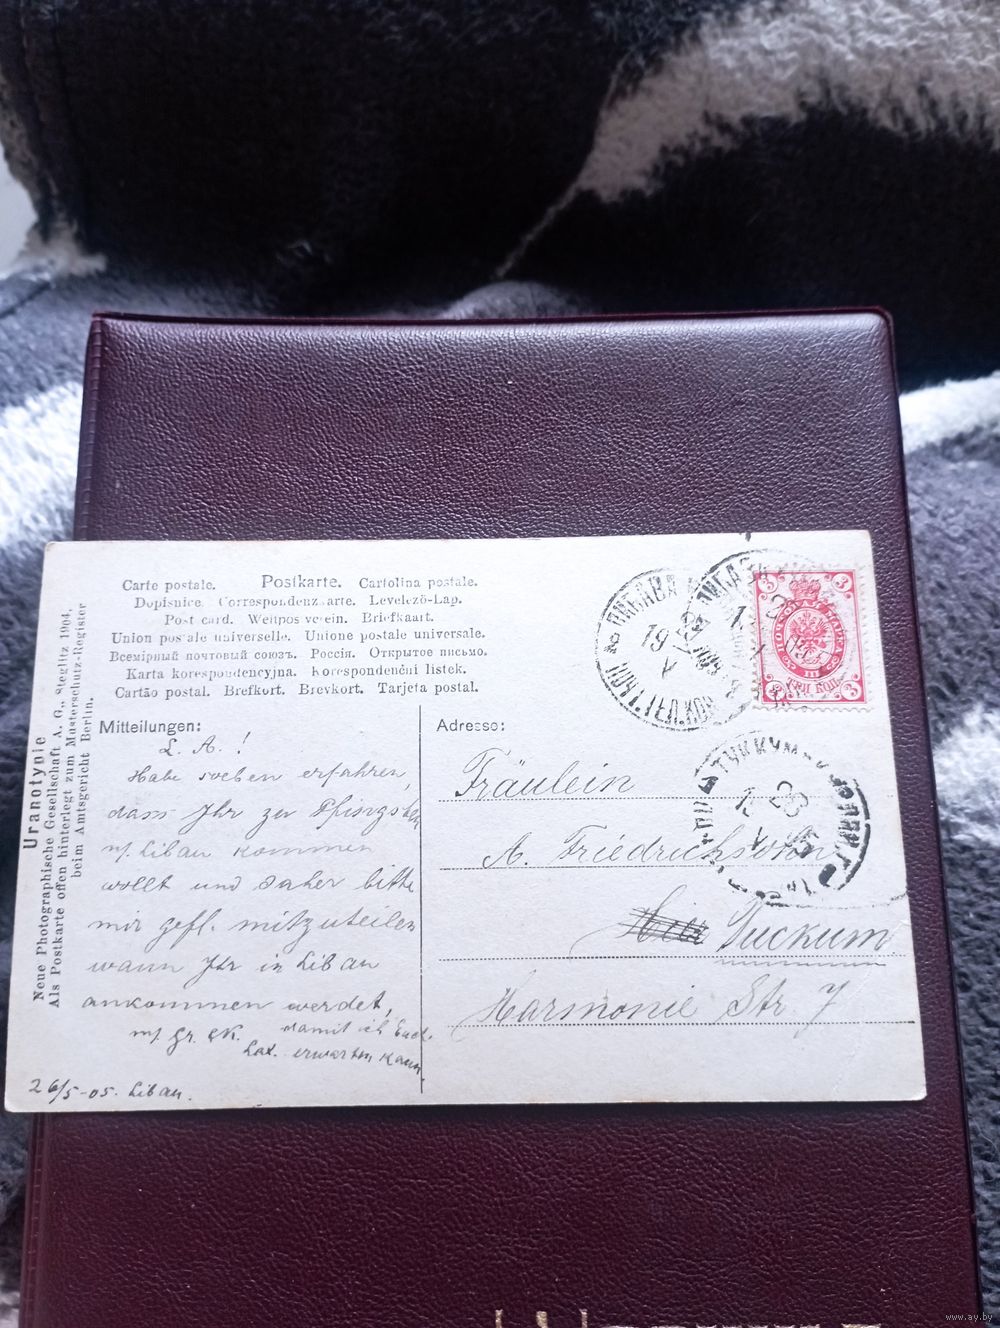 Carte postale. Postkarte. Cartolina postale.
Dopisnice. Correspondenzkarte. Levelezö-Lap.
Post card. Weltpostverein. Briefkaart.
Union postale universelle. Unione postale universale.
Всемірный почтовый союзъ. Россія. Открытое письмо.
Karta korespondencyjna. Korespondenční listek.
Cartão postal. Brefkort. Brevkort. Tarjeta postal.
Uranotypie
Neue Photographische Gesellschaft A. G., Steglitz 1904.
Als Postkarte offen hinterlegt zum Musterschutz-Register
beim Amtsgericht Berlin.
Mitteilungen:
L. A. !
Habe soeben erfahren,
dass Ihr zu Pfingsten
n/ Libau kommen
wollt und daher bitte
mir gefl. mitzuteilen
wann Ihr in Libau
ankommen werdet,
damit ich Euch
erwarten kann
m/ Gr.
26/5-05. Libau.
Adresse:
Fräulein
A. Friedrichsohn
Hier Tuckum
Harmonie Str 7
ЛИБАВА
19
V
ПОЧТ. ТЕЛ. КОН.
ЛИБАВА
ТУККУМЪ
V
3 3
ПОЧТОВАЯ МАРКА
III
3 ТРИ КОП. 3
www.ay.by